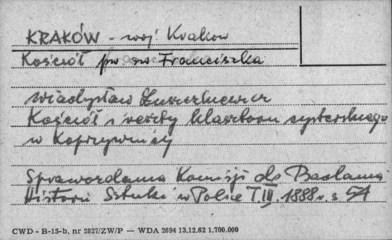 KRAKÓW - woj. Kraków
Kościół pw św Franciszka
Władysław Łuszczkiewicz
Kościół i reszty klasztoru cysterskiego
w Koprzywnicy
Sprawozdania Komisji do Badania
Historii Sztuki w Polsce T. III. 1888 r. s 54
CWD - B-15-b, nr 2827/ZW/P — WDA 2694 13.12.62 1.700.000